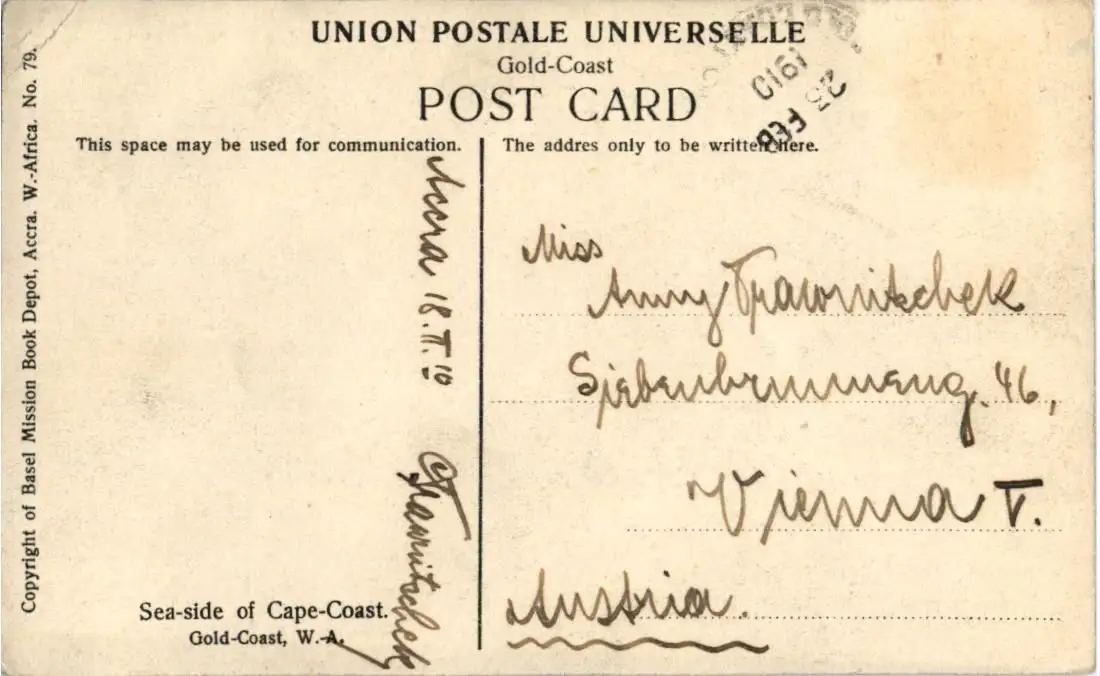 UNION POSTALE UNIVERSELLE
Gold-Coast
POST CARD
This space may be used for communication.
The addres only to be written here.
Copyright of Basel Mission Book Depot, Accra. W.-Africa. No. 79.
Accra 18.II.10
Trawnitschek
Sea-side of Cape-Coast.
Gold-Coast, W.-A.
FEB
1910
Miss
Anny Trawnitschek
Siebenbrunneng. 46,
Vienna V.
Austria.